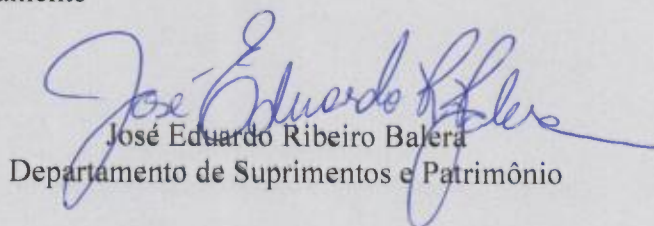 José Eduardo R Balera
José Eduardo Ribeiro Balera
Departamento de Suprimentos e Patrimônio